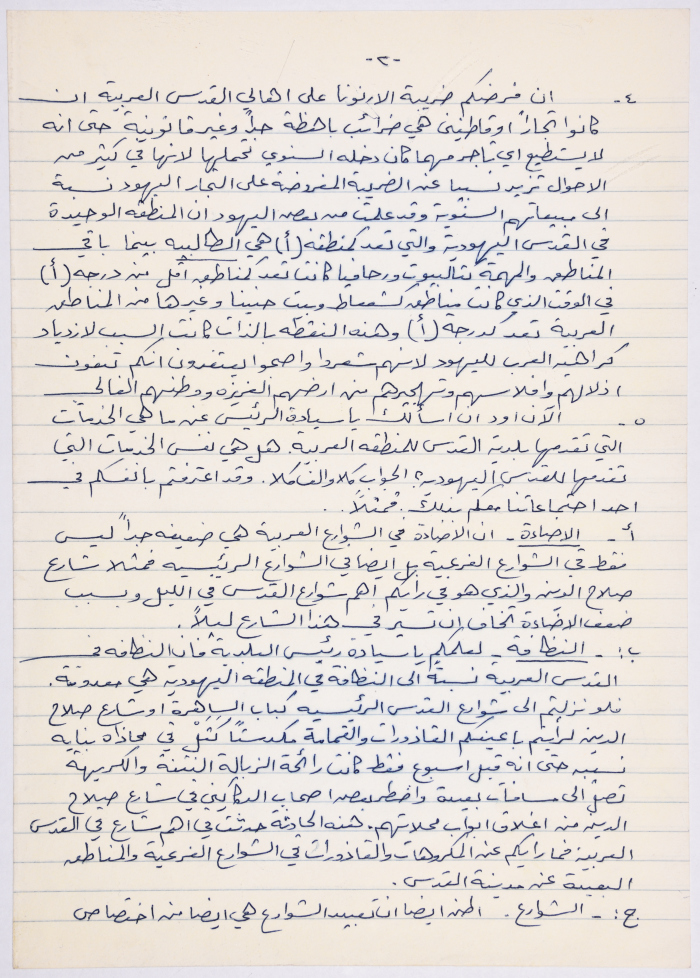 -٢-
٤- ان فرضكم ضريبة الارنونا على اهالي القدس العربية ان
كانوا تجاراً او قاطنين هي ضرائب باهظة جداً وغير قانونية حتى انه
لا يستطيع اي تاجر مهما كان دخله السنوي تحملها لانها في كثير من
الاحوال تزيد نسبيا عن الضريبة المفروضة على التجار اليهود نسبة
الى مبيعاتهم السنوية وقد علمت من بعض اليهود ان المنطقة الوحيدة
في القدس اليهودية والتي تعد كمنطقة (أ) هي الطالبيه بينما باقي
المناطق والمهمة كتالبيوت ورحافيا كانت تعد كمناطق أقل من درجة (أ)
في الوقت الذي كانت مناطق كشعفاط وبيت حنينا وغيرها من المناطق
العربية تعد كدرجة (أ) وهذه النقطة بالذات كانت السبب لازدياد
كراهية العرب لليهود لانهم شعروا واصبحوا يعتقدون انكم تبغون
اذلالهم وافلاسهم وتهجيرهم من ارضهم العزيزه ووطنهم الغالي
٥- الآن اود ان اسألك يا سيادة الرئيس عن ما هي الخدمات
التي تقدمها بلدية القدس للمنطقه العربية. هل هي نفس الخدمات التي
تقدمها للقدس اليهودية؟ الجواب كلا والف كلا. وقد اعترفتم بانفسكم في
احد اجتماعاتنا معكم بذلك. فمثلاً..
أ- الاضاءة - ان الاضاءة في الشوارع العربية هي ضعيفه جداً ليس
فقط في الشوارع الفرعية بل ايضا في الشوارع الرئيسيه فمثلا شارع
صلاح الدين والذي هو في رايكم اهم شوارع القدس في الليل وبسبب
ضعف الاضاءة تخاف ان تسير في هذا الشارع ليلاً.
ب:- النظافة - لعلمكم يا سيادة رئيس البلدية فان النظافه في
القدس العربية نسبة الى النظافة في المنطقه اليهودية هي معدومة.
فلو نزلتم الى شوارع القدس الرئيسيه كباب الساهرة او شارع صلاح
الدين لرأيتم باعينكم القاذورات والقمامة مكدستاً كتل في محاذاه بنايه
نسيبه حتى انه قبل اسبوع فقط كانت رائحة الزبالة النتنة والكريهة
تصل الى مسافات بعيدة واضطر بعض اصحاب الدكاكين في شارع صلاح
الدين من اغلاق ابواب محلاتهم. هذه الحادثة حدثت في اهم شارع في القدس
العربية فما رايكم عن المكروهات والقاذورات في الشوارع الفرعية والمناطق
البعيدة عن مدينة القدس.
ج:- الشوارع. اظن ايضا ان تعبيد الشوارع هي ايضا من اختصاص